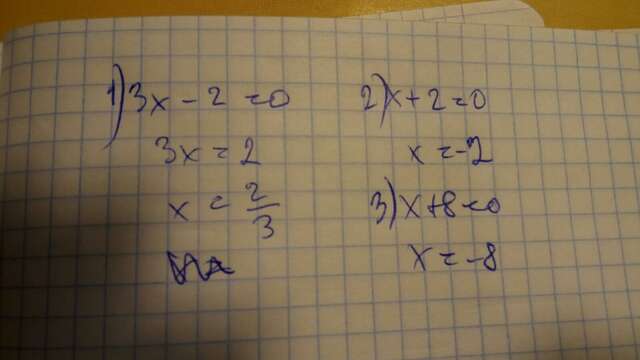 1) 3x - 2 = 0
3x = 2
x = 2/3
2) x + 2 = 0
x = -2
3) x + 8 = 0
x = -8